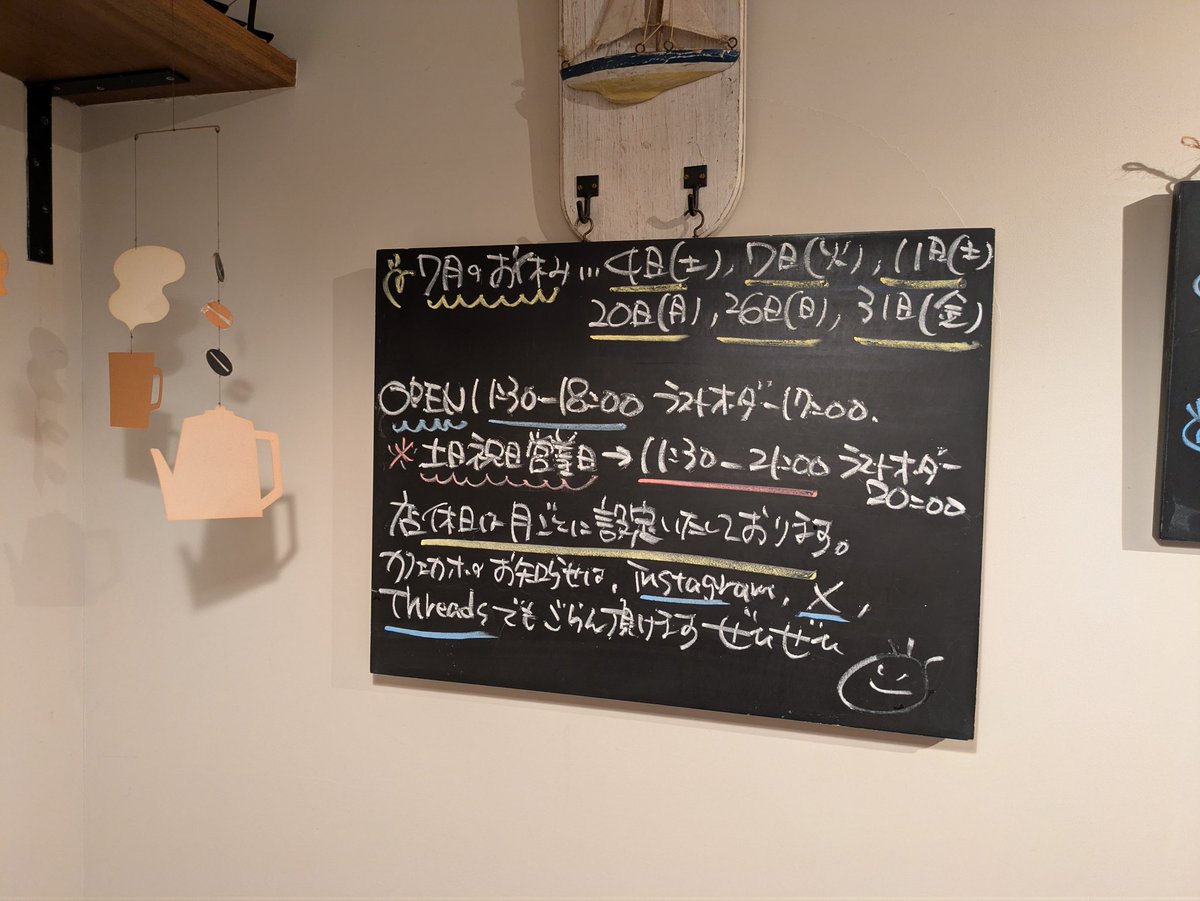 7月のお休み…4日(土)、7日(火)、11日(土)
20日(月)、26日(日)、31日(金)
OPEN 11:30-18:00 ラストオーダー17:00.
※土日祝日営業日→11:30-21:00 ラストオーダー
20:00
店休日は月ごとに設定いたしております。
カフェカホのお知らせは、instagram、X、
Threadsでもごらん頂けます ぜひぜひ